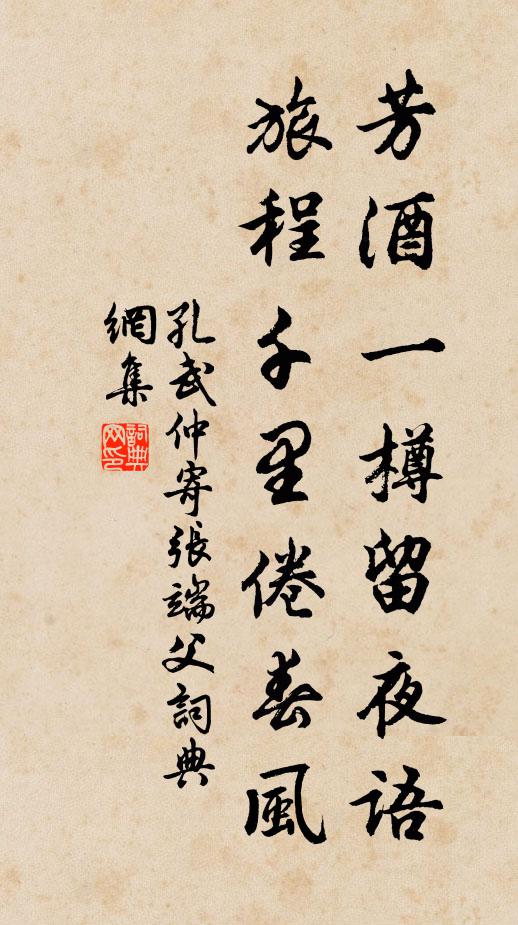 芳酒一樽留夜語
旅程千里倦春風
孔武仲寄張端父詞典
網集
詞典網印